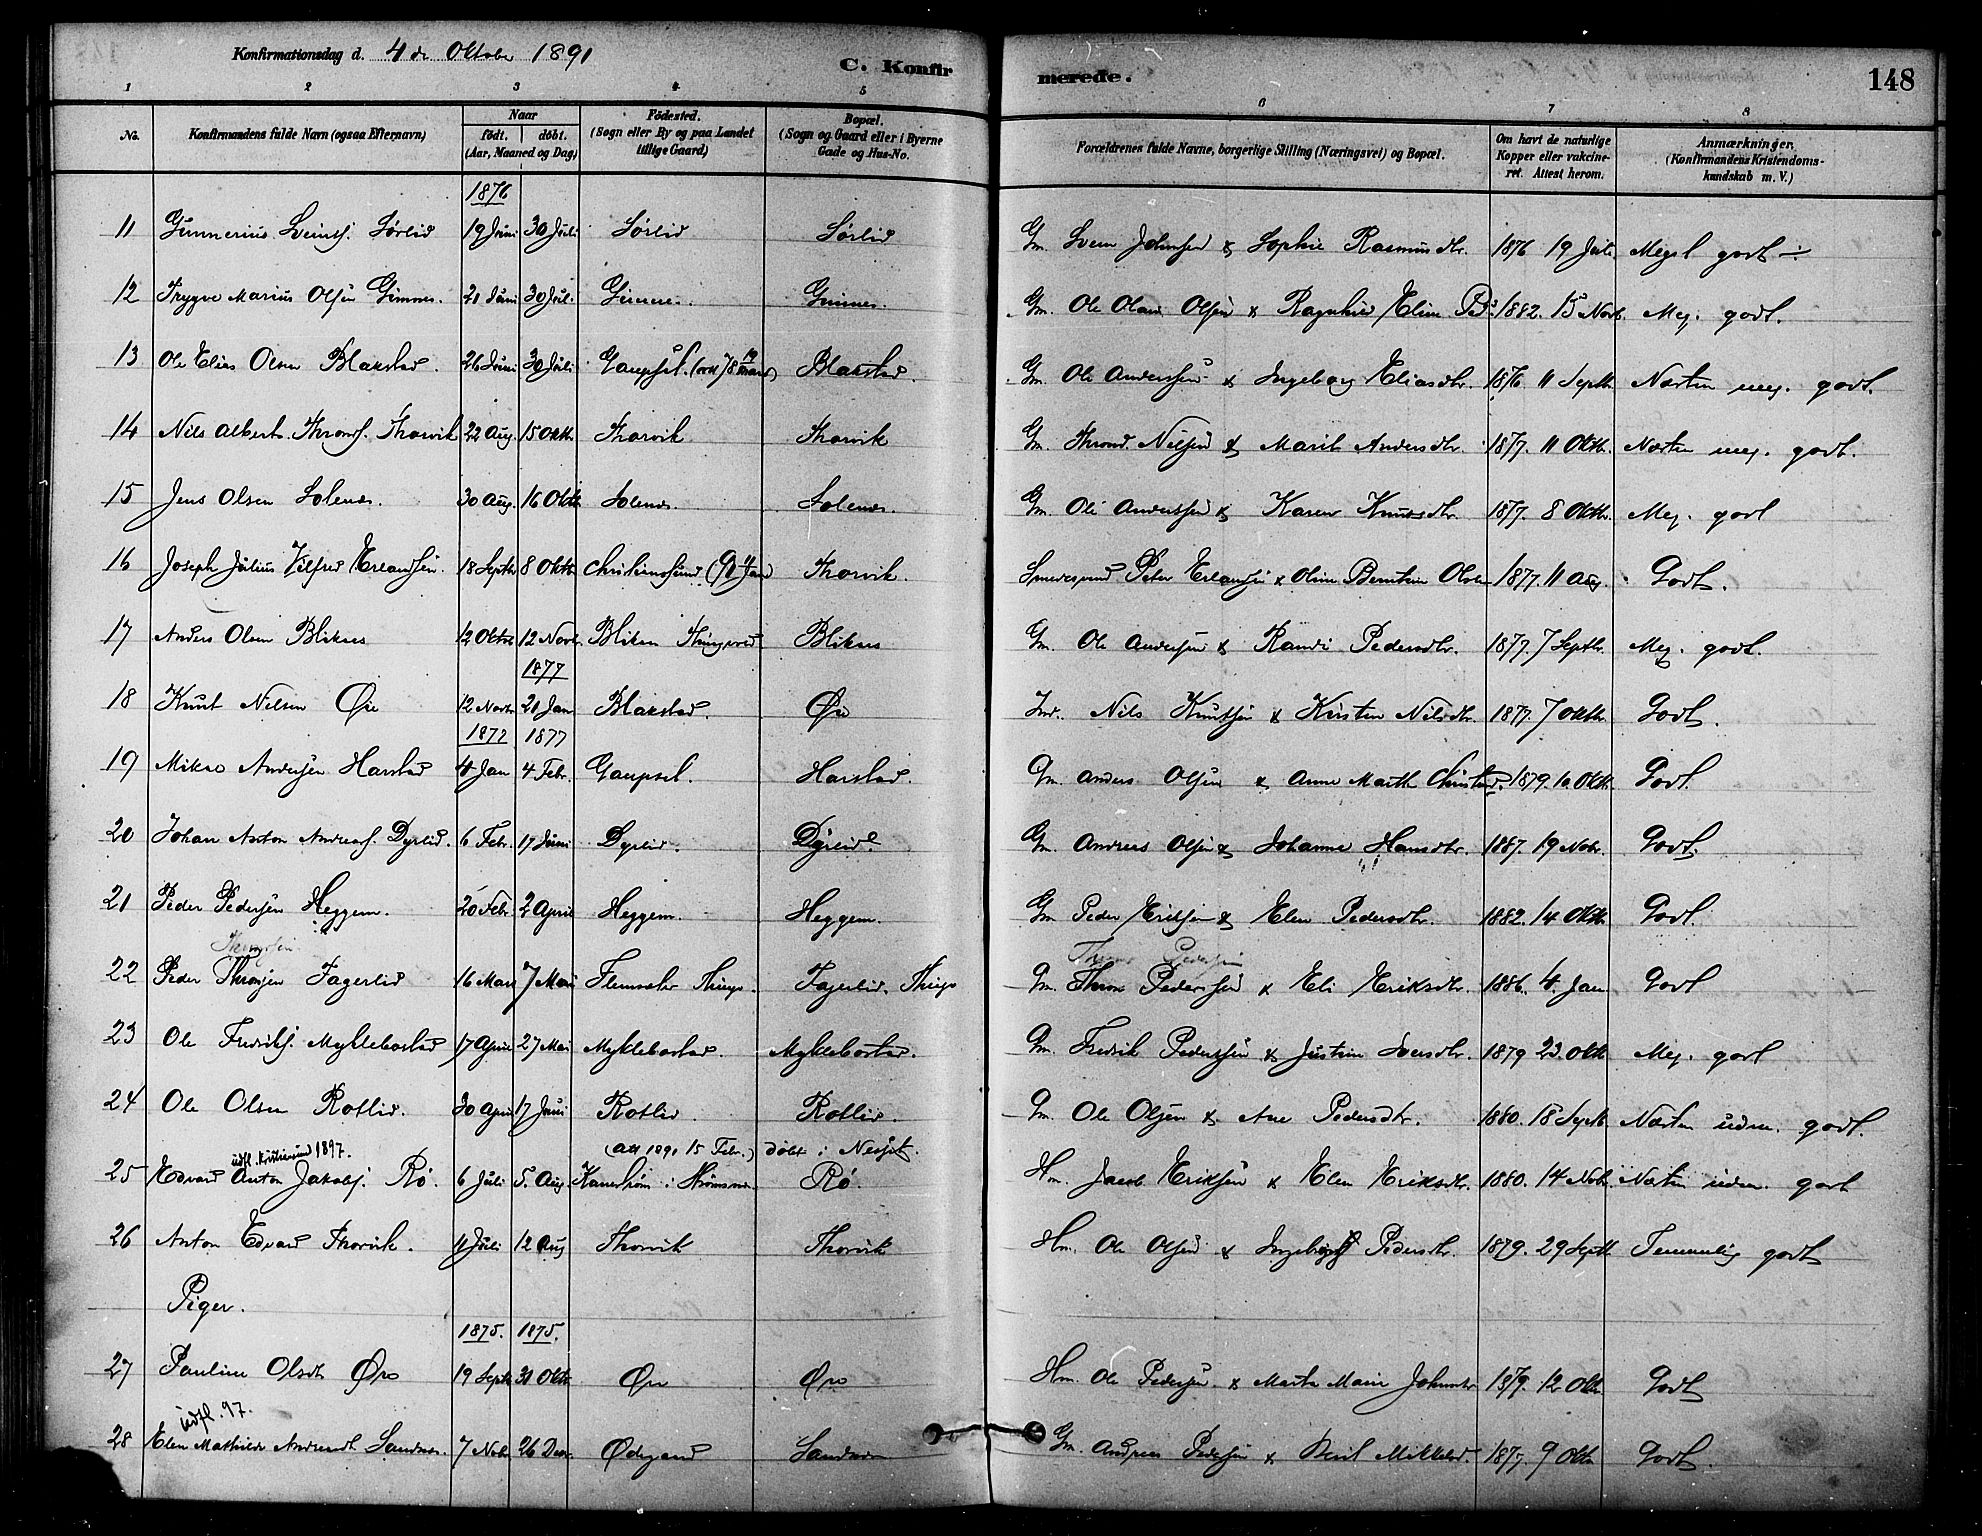 Konfirmationsdag d. 4de Oktober 1891
C. Konfirmerede.
148
1 2 3 4 5 6 7 8
No. Konfirmandens fulde Navn (ogsaa Efternavn) Naar født. døbt. (Aar, Maaned og Dag) Fødested. (Sogn eller By og paa Landet tillige Gaard) Bopæl. (Sogn og Gaard eller i Byerne Gade og Hus-No. Forældrenes fulde Navne, borgerlige Stilling (Næringsvei) og Bopæl. Om havt de naturlige Kopper eller vakcineret. Attest herom. Anmærkninger. (Konfirmandens Kristendomskundskab m. V.)
1876
11 Gunnerius Sveinsf. Sørlid 19 Juni 30 Juli Sørlid Sørlid Gm. Svein Johnsen & Sophie Rasmusdtr. 1876 19 Juli Meget godt
12 Trygve Marius Olsen Gimnes. 21 Juni 30 Juli Gimnes. Gimnes. Gm. Ole Olaus Olsen & Ragnhild Eline Pedd. 1882. 15 Novb. Meg. godt.
13 Ole Elias Olsen Blakstad. 26 Juni 30 Juli Gaupset. Blakstad. Gm. Ole Anderssen & Ingeborg Eliasdtr. 1876 11 Septb. Næsten meg. godt.
14 Nils Albert Thronds. Thorvik 22 Aug. 15 Oktb. Thorvik Thorvik Gm. Thrond Nilsen & Marit Andersdtr. 1877. 11 Oktb. Næsten meg. godt.
15 Jens Olsen Solenes. 30 Aug. 16 Oktb Solenes. Solenes. Gm. Ole Anderssen & Karen Knudsdtr. 1877. 8 Oktb. Meg. godt
16 Joseph Julius Vilfred Erlandsen. 18 Septb 8 Oktb Christianssund (90 4 Jan) Thorvik. Peter Erlandsen & Oline Berntine Olsdr 1877. 11 Aug. Godt.
17 Anders Olsen Bliknes 12 Oktbr 12 Novb. Bliknes Thingvold Bliknes Gm. Ole Andersen & Randi Pedersdtr. 1877. 7 Septbr. Meg. godt.
1877
18 Knut Nilsen Øre 12 Novbr 21 Jan Blakstad. Øre Ind. Nils Knutsen & Kirsten Nilsdtr. 1877. 7 Oktbr. Godt.
1877 1877
19 Mikal Andersen Harstad 4 Jan 4 Febr. Gaupset. Harstad. Gm. Anders Olsen & Anne Marthe Christensd. 1879. 10. Oktb. Godt.
20 Johan Anton Andreas. Dyrlid. 6 Febr. 17 Juni Dyrlid. Dyrlid. Gm. Andreas Olsen & Johanne Hansdtr. 1887. 19 Nobr. Godt.
21 Peder Pedersen Heggem. 20 Febr. 2 April Heggem. Heggem. Gm Peder Eriksen & Elen Pedersdtr. 1882. 14 Oktb. Godt
22 Peder Thronsen Fagerlid 16 Mars 7 Mai Thingv. Fagerlid. Thingv Gm. Thron Pedersen & Eli Eriksdtr. 1886. 4. Jan Godt
23 Ole Fredriks. Myklebostad 17 April 27 Mai Myklebostad. Myklebostad. Gm. Fredrik Pederssen & Justine Iversdtr. 1879 23. Oktb Meg. godt
24 Ole Olsen Rotlid. 30 April 17 Juni Rotlid. Rotlid. Gm. Ole Olsen & Ane Pedersdtr. 1880. 18 Septb Næsten udm. godt.
udfl. Kristiansund 1897. (att 1891 15 Febr.) døbt i Nesset.
25 Edvard Anton Jakobs. Rø. 6 Juli 5. Aug. Rø. Hm. Jacob Eriksen & Elen Eriksdtr. 1880. 14 Nobr. Næsten udm. godt
26 Anton Edvard Thorvik. 11 Juli 12 Aug Thorvik Thorvik Hm. Ole Olsen & Ingeborg Pedersdtr. 1879. 29 Septb Temmelig godt
Piger.
1875. 1875.
27 Pauline Olsdt Øre 19 Septb 31 Oktb Øre Øre Hm. Ole Pedersen & Marta Marie Johnsdtr 1879. 12 Oktb Godt
udfl. 97.
28 Elen Mathilde Andreasdt Sandnes. 7 Nobr 26 Dec. Ødegaard Sandnes Gm. Andreas Pedersen & Beret Mikkelsd. 1877. 9 Oktb Godt.